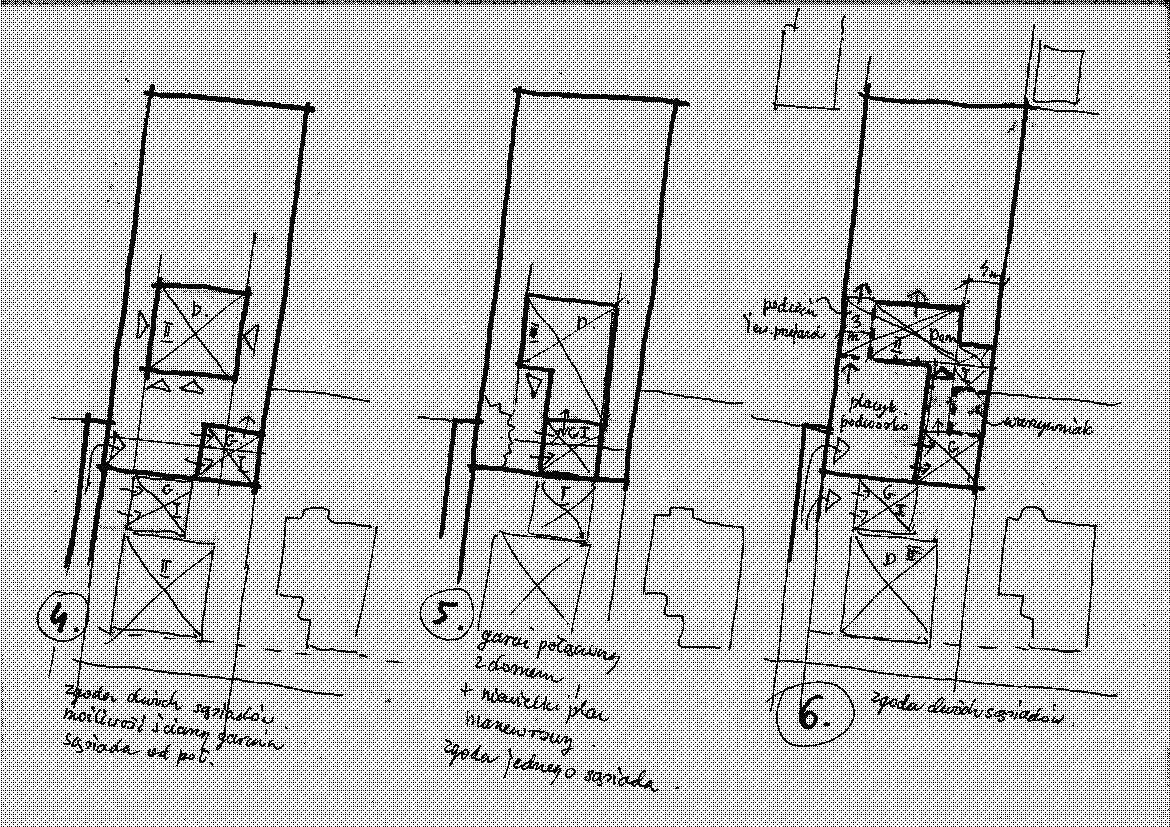 D.
II
G.
I
G
I
II
4.
zgoda dwóch sąsiadów
możliwość ściany garażu
sąsiada od poł.
D.
II
G I
I
5.
garaż połączony
z domem!
+ niewielki plac
manewrowy.
zgoda jednego sąsiada.
4 m
podcień
i ew. przejazd
3
m
II
Dom
I
placyk.
podwórko
warzywniak
G
G
I
D II
6.
zgoda dwóch sąsiadów.